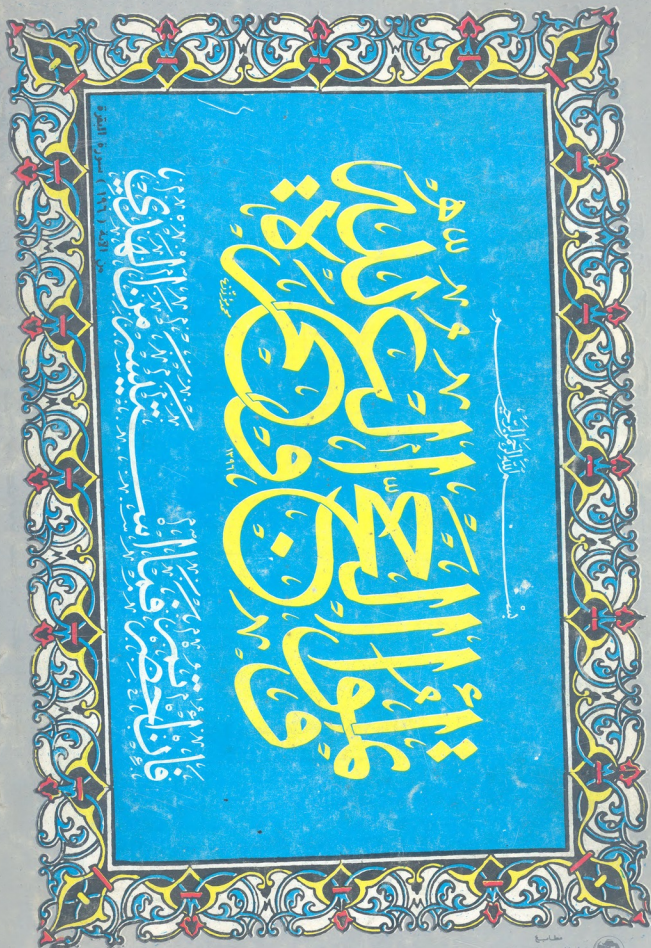 بسم الله الرحمن الرحيم
وأتموا الحج والعمرة لله
فإن أحصرتم فما استيسر من الهدي
من الآية (١٩٦) سورة البقرة
١٣٩٦